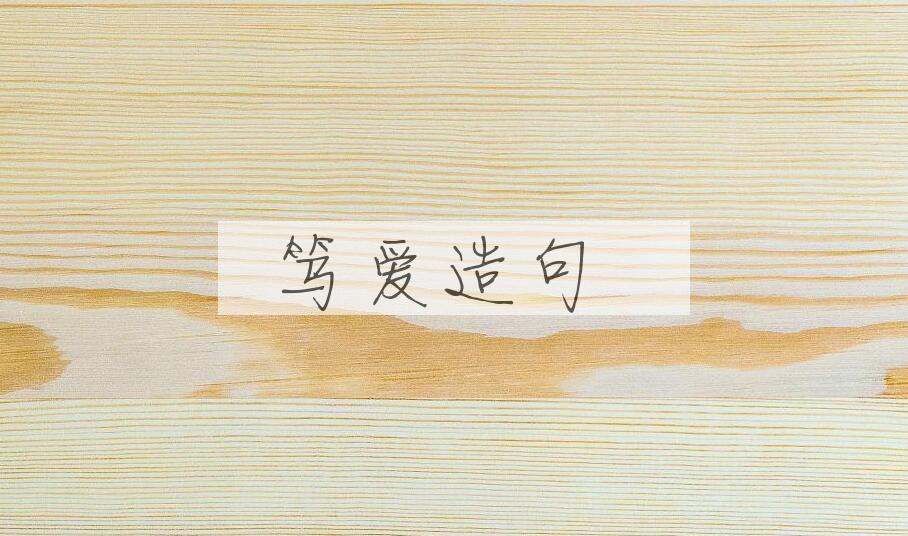 笃爱造句